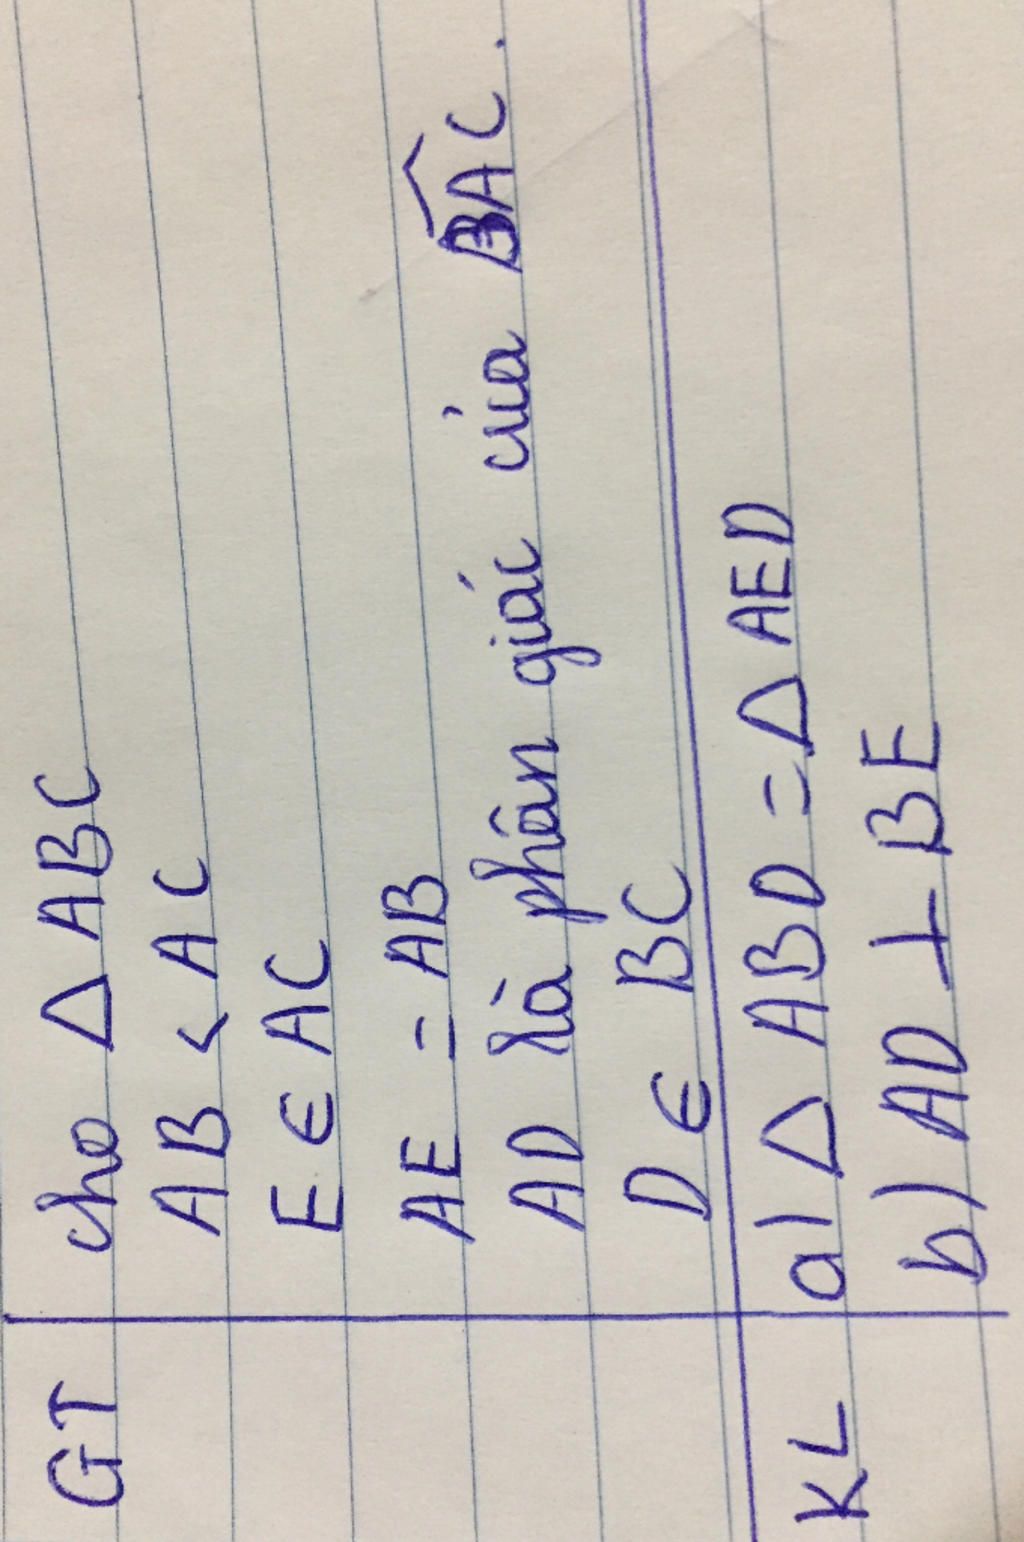 GT cho △ ABC
AB < AC
E ∈ AC
AE = AB
AD là phân giác của B̂AC.
D ∈ BC
KL a) △ ABD = △ AED
b) AD ⊥ BE